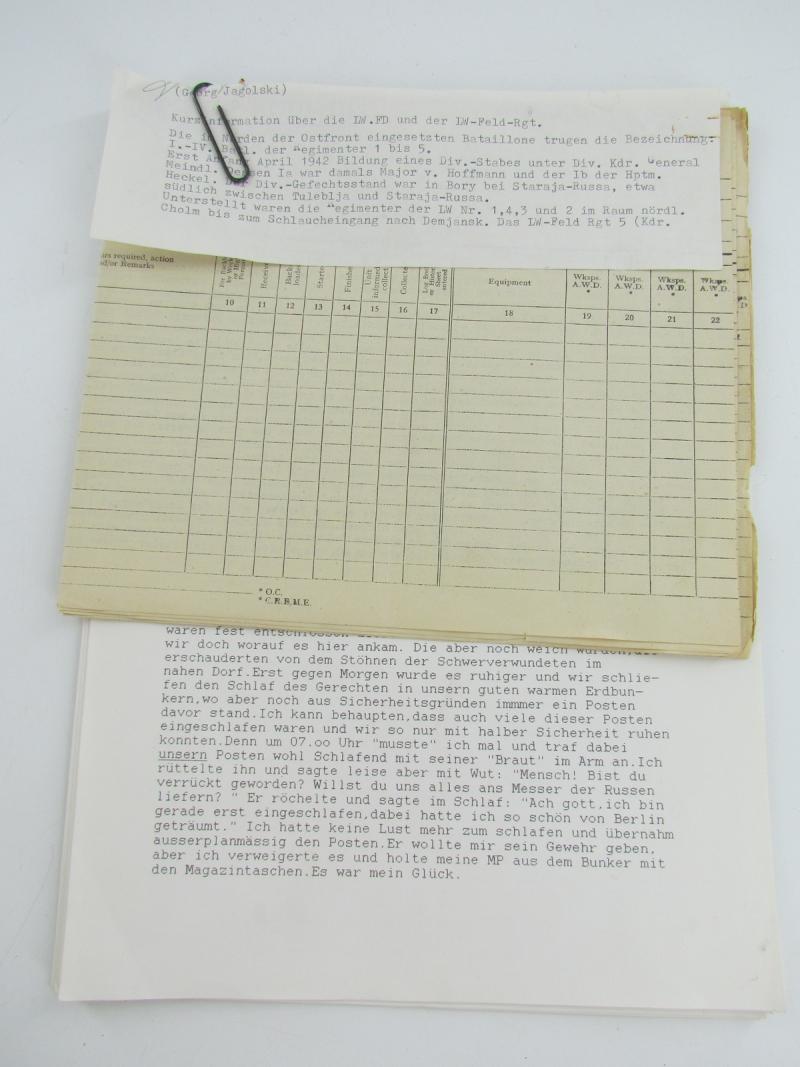 (Georg/Jagolski)
Kurzinformation über die LW.FD und der LW-Feld-Rgt.
Die im Norden der Ostfront eingesetzten Bataillone trugen die Bezeichnung:
I.-IV. Batl. der Regimenter 1 bis 5.
Erst Anfang April 1942 Bildung eines Div.-Stabes unter Div. Kdr. General
Meindl. Dessen Ia war damals Major v. Hoffmann und der Ib der Hptm.
Heckel. Der Div.-Gefechtsstand war in Bory bei Staraja-Russa, etwa
südlich zwischen Tuleblja und Staraja-Russa.
Unterstellt waren die Regimenter der LW Nr. 1,4,3 und 2 im Raum nördl.
Cholm bis zum Schlaucheingang nach Demjansk. Das LW-Feld Rgt 5 (Kdr.
required, action
and/or Remarks
Started
Finished
Unit informed collect
Log Book or History Sheet entered
Equipment
Wksps. A.W.D. *
Wksps. A.W.D. *
Wksps. A.W.D. *
Wksps. A.W.D. *
10 11 12 13 14 15 16 17 18 19 20 21 22
* O.C.
* C.R.E.M.E.
waren fest entschlossen
wir doch worauf es hier ankam. Die aber noch weich wurden,
erschauderten von dem Stöhnen der Schwerverwundeten im
nahen Dorf.Erst gegen Morgen wurde es ruhiger und wir schlie-
fen den Schlaf des Gerechten in unsern guten warmen Erdbun-
kern,wo aber noch aus Sicherheitsgründen immmer ein Posten
davor stand.Ich kann behaupten,dass auch viele dieser Posten
eingeschlafen waren und wir so nur mit halber Sicherheit ruhen
konnten.Denn um 07.oo Uhr "musste" ich mal und traf dabei
unsern Posten wohl Schlafend mit seiner "Braut" im Arm an.Ich
rüttelte ihn und sagte leise aber mit Wut: "Mensch! Bist du
verrückt geworden? Willst du uns alles ans Messer der Russen
liefern? " Er röchelte und sagte im Schlaf: "Ach gott,ich bin
gerade erst eingeschlafen,dabei hatte ich so schön von Berlin
geträumt." Ich hatte keine Lust mehr zum schlafen und übernahm
ausserplanmässig den Posten.Er wollte mir sein Gewehr geben,
aber ich verweigerte es und holte meine MP aus dem Bunker mit
den Magazintaschen.Es war mein Glück.